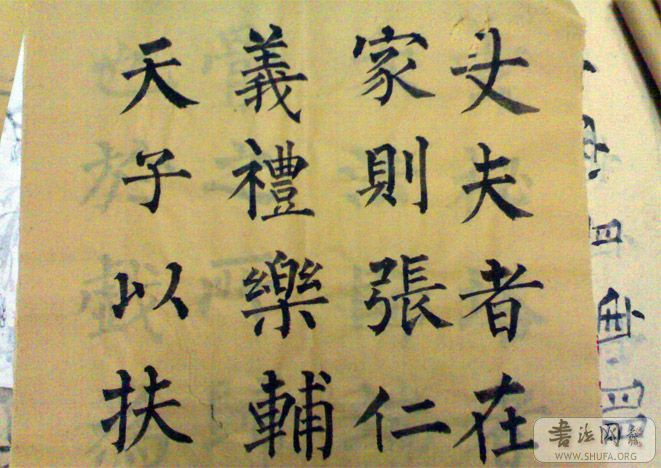 丈夫者在
家則張仁
義禮樂輔
天子以扶
书法网
WWW.SHUFA.ORG